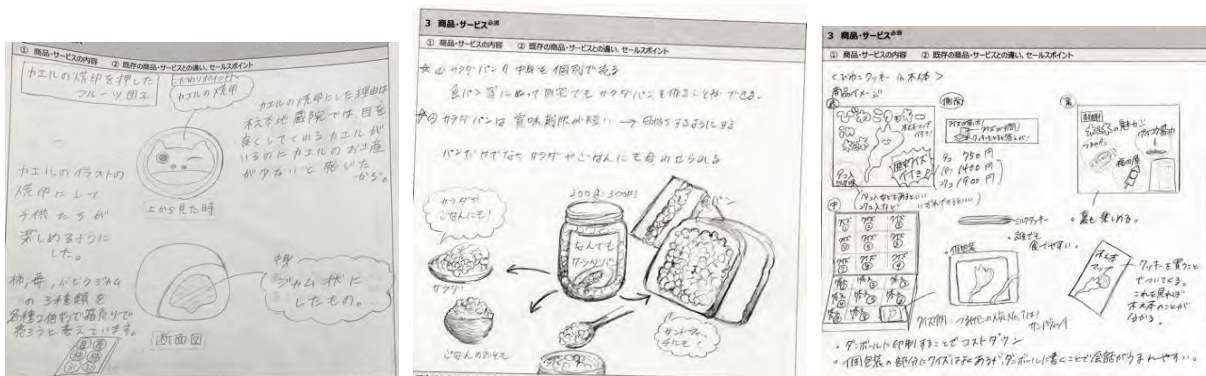 ① 商品・サービスの内容 ② 既存の商品・サービスとの違い、セールスポイント
カエルの焼印を押した
フルーツ団子
こだわりポイント
カエルの焼印
カエルの焼印にした理由は
木之本地蔵院では、目を
良くしてくれるカエルが
いるのにカエルのお土産
が少ないと感じた
から。
カエルのイラストの
焼印にして
子供たちが
楽しめるように
した。
上から見た時
柿、苺、ぶどうジャム
の3種類を
各種2個ずつで箱売りで
売ろうと考えています。
中身
ジャム状に
したもの。
断面図
3 商品・サービス必須
① 商品・サービスの内容 ② 既存の商品・サービスとの違い、セールスポイント
サラダパンの中身を個別で売る
食パン等にぬって自宅でもサラダパンを作ることができる。
サラダパンは賞味期限が短い → 日持ちするようにする
パンだけでなくサラダやごはんにものせられる
200g:500円
サラダや
ごはんにも!
食パン
なんでも
サラダパン
サラダ
ごはんのおとも
サンドイッ
チにも!
3 商品・サービス必須
① 商品・サービスの内容 ② 既存の商品・サービスとの違い、セールスポイント
<びわこクッキー in 木之本>
商品イメージ
表
側面
裏
びわこクッキー
木之本マップ
付き!
歴史クイズ
付き!
750円
1400円
1900円
中
ミルククッキー
・誰でも
食べやすい。
・裏も楽しめる。
・個包装
木之本
マップ
クッキーを買うこと
でついてくる。
これを見れば
木之本のことが
分かる。
サンドイッチ
・ダンボールに印刷することでコストダウン
・個包装の部分にクイズはよくあるが、ダンボールに書くことで会話がうまれやすい。